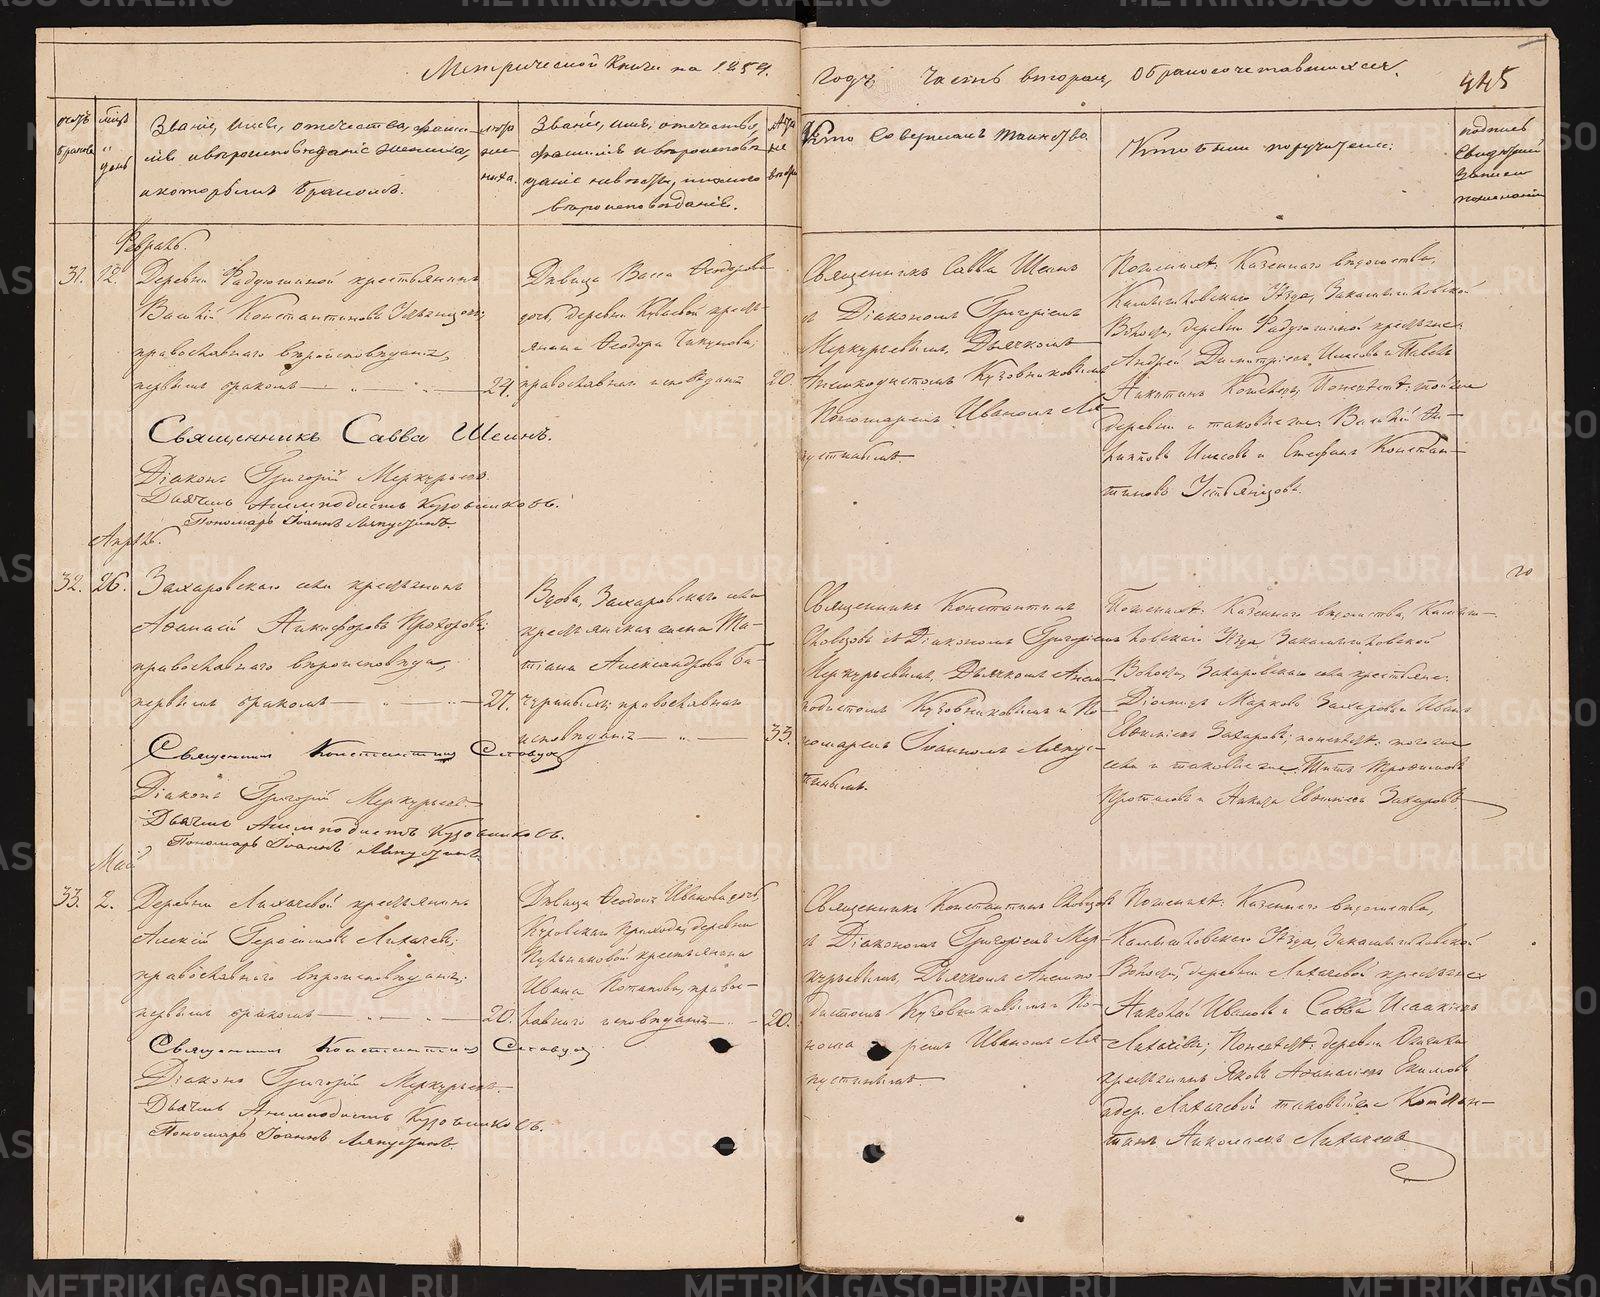 Метрической книги на 1859.
годъ часть вторая, о бракосочетавшихся.
445
счетъ
брака
мцъ
и
день
Званіе, имя, отечество, фами-
лія и вѣроисповѣданіе жениха,
и которымъ бракомъ.
лѣта
же-
ниха.
Званіе, имя, отечество,
фамилія и вѣроиспов-
ѣданіе невѣсты,
вѣроисповѣданіе.
лѣта
не-
вѣсты
Кто совершалъ таинство.
Кто были поручители:
подпись
свидѣтелей
записи
по желанію
Февраль.
31.
12.
Деревни крестьянинъ
Василій Константиновъ Устьянцовъ,
православнаго вѣроисповѣданія,
первымъ бракомъ
24.
Дѣвица Васса Ѳеодорова
дочь, деревни крестъ-
янина Ѳеодора
православнаго исповѣданія
20.
Священникъ Савва Шеинъ
съ Діакономъ Григоріемъ
Меркурьевымъ, Дьячкомъ
Анемподистомъ Кузовниковымъ
Пономаремъ Иваномъ Ля-
пустинымъ.
По женихѣ: Казеннаго вѣдомства,
Камышловскаго Уѣзда, Закамышловской
Волости, деревни крестьяне
Андрей Димитріевъ и Павелъ
Никитинъ по невѣстѣ: той же
деревни и таковые же Василій
и Стефанъ Констан-
тиновъ Устьянцовъ.
Священникъ Савва Шеинъ.
Діаконъ Григорій Меркурьевъ.
Дьячекъ Анемподистъ Кузовниковъ.
Пономарь Іоаннъ Ляпустинъ.
Апрѣль.
32.
26.
Захаровскаго села крестьянинъ
Аѳанасій Никифоровъ Прохоровъ,
православнаго вѣроисповѣда,
первымъ бракомъ
27.
Вдова, Захаровскаго села
крестьянская жена Та-
тіана Александрова Ба-
чуриныхъ, православнаго
исповѣданія
33.
Священникъ Константинъ
Словцовъ съ Діакономъ Григоріемъ
Меркурьевымъ, Дьячкомъ Анем-
подистомъ Кузовниковымъ и По-
номаремъ Іоанномъ Ляпус-
тинымъ.
По женихѣ: Казеннаго вѣдомства, Камыш-
ловскаго Уѣзда, Закамышловской
Волости, Захаровскаго села крестьяне:
Марковъ Захаровъ и Иванъ
Евѳиміевъ Захаровъ, по невѣстѣ: того же
села и таковые же: Титъ Трофимовъ
и Евѳиміевъ Захаровъ
Священникъ Константинъ Словцовъ
Діаконъ Григорій Меркурьевъ.
Дьячекъ Анемподистъ Кузовниковъ.
Пономарь Іоаннъ Ляпустинъ.
Май
33.
2.
Деревни Лихачевой крестьянинъ
Алексій Герасимовъ Лихачевъ,
православнаго вѣроисповѣданія,
первымъ бракомъ
20.
Дѣвица Ѳеодосія Иванова дочь,
Куровскаго прихода, деревни
крестьянина
Ивана Потапова, право-
славнаго исповѣданія
20.
Священникъ Константинъ Словцовъ
съ Діакономъ Григоріемъ Мер-
курьевымъ, Дьячкомъ Анемпо-
дистомъ Кузовниковымъ и По-
нома ремъ Иваномъ Ля-
пустинымъ.
По женихѣ: Казеннаго вѣдомства,
Камышловскаго Уѣзда, Закамышловской
Волости, деревни Лихачевой крестьяне
Николай Ивановъ и Савва Исаакіевъ
Лихачевы; По невѣстѣ: деревни
крестьянинъ Яковъ Аѳанасіевъ Екимовъ
и дер. Лихачевой таковый же Констан-
тинъ Николаевъ Лихачевъ
Священникъ Константинъ Словцовъ
Діаконъ Григорій Меркурьевъ.
Дьячекъ Анемподистъ Кузовниковъ.
Пономарь Іоаннъ Ляпустинъ.
METRIKI.GASO-URAL.RU